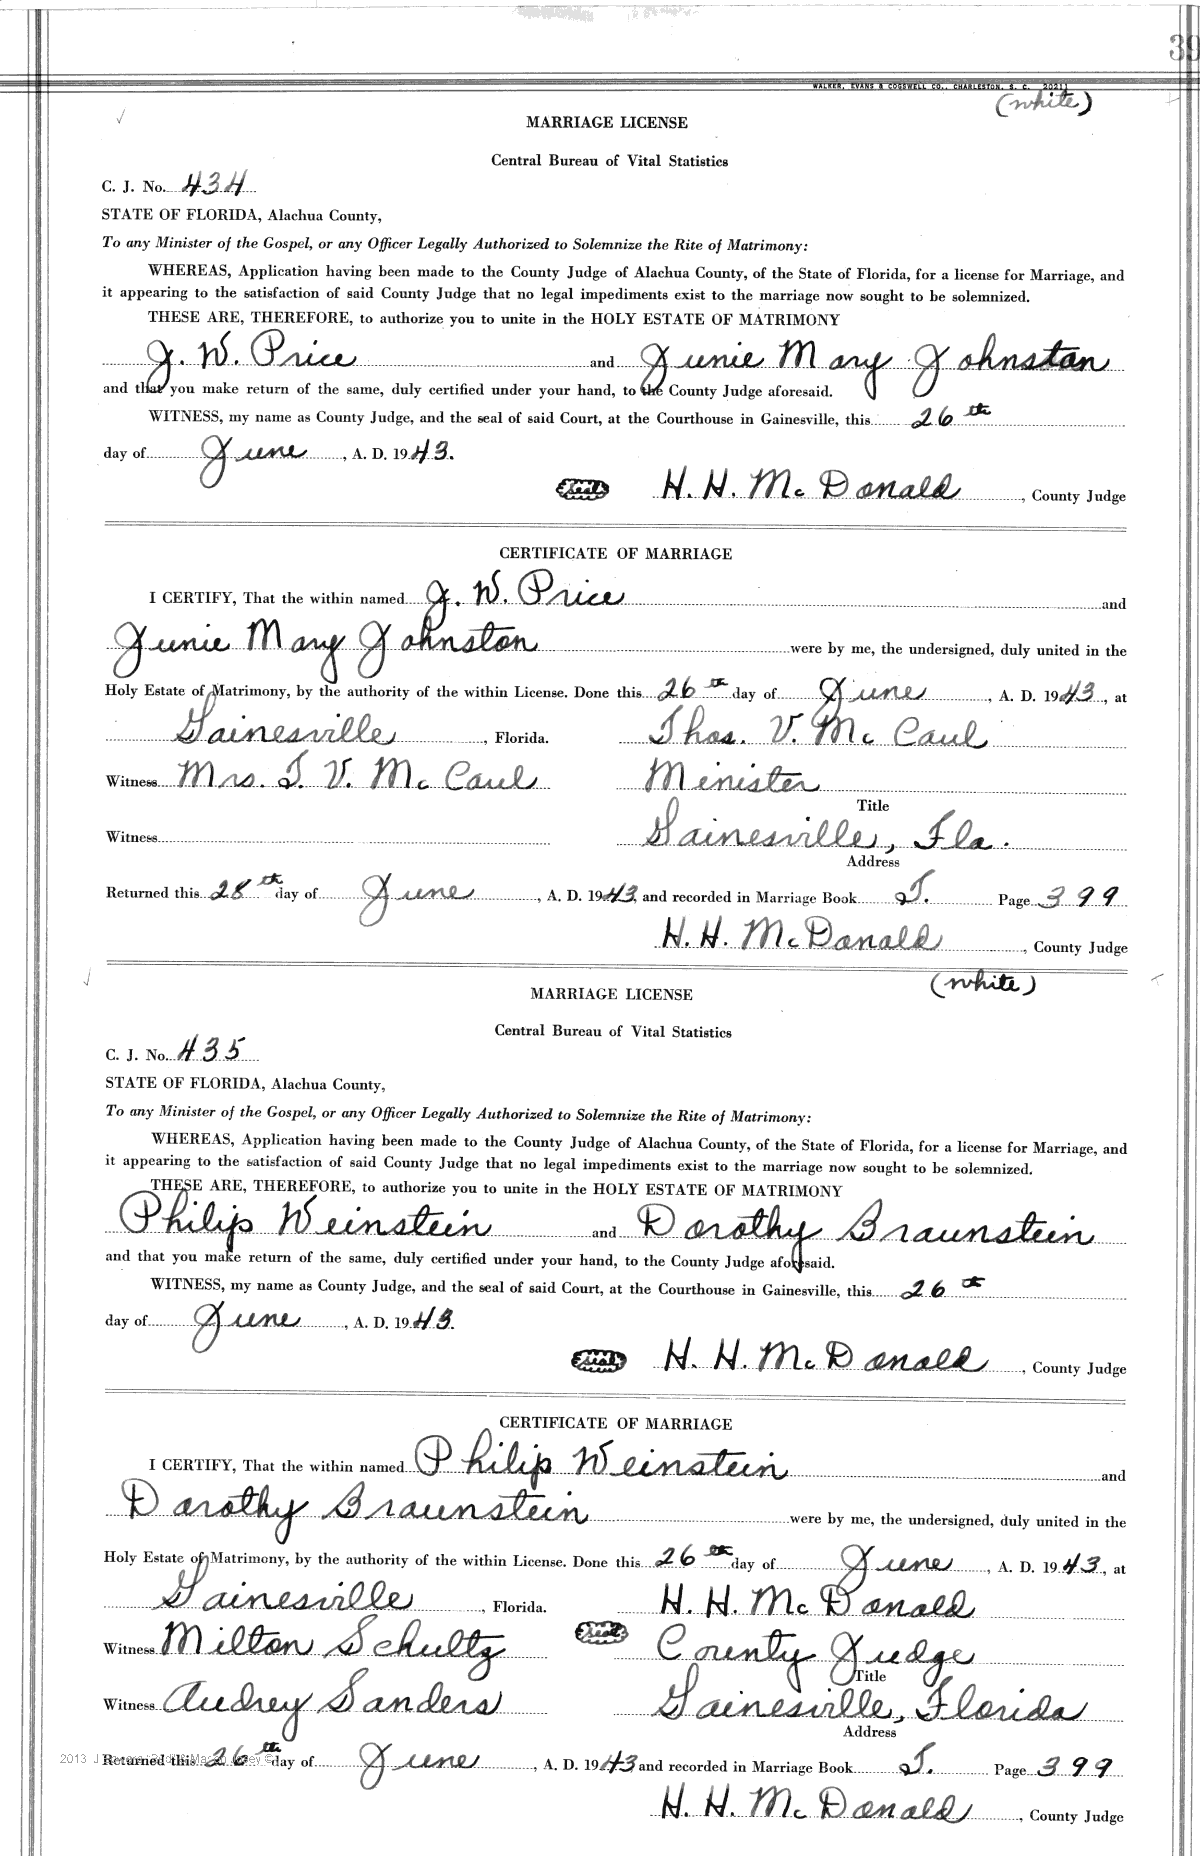 39
WALKER, EVANS & COGSWELL CO., CHARLESTON, S. C. 2021
(white)
MARRIAGE LICENSE
Central Bureau of Vital Statistics
C. J. No. 434
STATE OF FLORIDA, Alachua County,
To any Minister of the Gospel, or any Officer Legally Authorized to Solemnize the Rite of Matrimony:
WHEREAS, Application having been made to the County Judge of Alachua County, of the State of Florida, for a license for Marriage, and
it appearing to the satisfaction of said County Judge that no legal impediments exist to the marriage now sought to be solemnized.
THESE ARE, THEREFORE, to authorize you to unite in the HOLY ESTATE OF MATRIMONY
J. W. Price and Junie Mary Johnston
and that you make return of the same, duly certified under your hand, to the County Judge aforesaid.
WITNESS, my name as County Judge, and the seal of said Court, at the Courthouse in Gainesville, this 26th
day of June, A. D. 1943.
Seal H. H. McDonald, County Judge
CERTIFICATE OF MARRIAGE
I CERTIFY, That the within named J. W. Price and
Junie Mary Johnston were by me, the undersigned, duly united in the
Holy Estate of Matrimony, by the authority of the within License. Done this 26th day of June, A. D. 1943, at
Gainesville, Florida. Thos. V. McCaul
Witness Mrs. T. V. McCaul Minister
Title
Witness Gainesville, Fla.
Address
Returned this 28th day of June, A. D. 1943, and recorded in Marriage Book T. Page 399
H. H. McDonald, County Judge
(white)
MARRIAGE LICENSE
Central Bureau of Vital Statistics
C. J. No. 435
STATE OF FLORIDA, Alachua County,
To any Minister of the Gospel, or any Officer Legally Authorized to Solemnize the Rite of Matrimony:
WHEREAS, Application having been made to the County Judge of Alachua County, of the State of Florida, for a license for Marriage, and
it appearing to the satisfaction of said County Judge that no legal impediments exist to the marriage now sought to be solemnized.
THESE ARE, THEREFORE, to authorize you to unite in the HOLY ESTATE OF MATRIMONY
Philip Weinstein and Dorothy Braunstein
and that you make return of the same, duly certified under your hand, to the County Judge aforesaid.
WITNESS, my name as County Judge, and the seal of said Court, at the Courthouse in Gainesville, this 26th
day of June, A. D. 1943.
seal H. H. McDonald, County Judge
CERTIFICATE OF MARRIAGE
I CERTIFY, That the within named Philip Weinstein and
Dorothy Braunstein were by me, the undersigned, duly united in the
Holy Estate of Matrimony, by the authority of the within License. Done this 26th day of June, A. D. 1943, at
Gainesville, Florida. H. H. McDonald
Witness Milton Schultz seal County Judge
Title
Witness Audrey Sanders Gainesville, Florida
Address
2013
Returned this 26th day of June, A. D. 1943 and recorded in Marriage Book T. Page 399
H. H. McDonald, County Judge